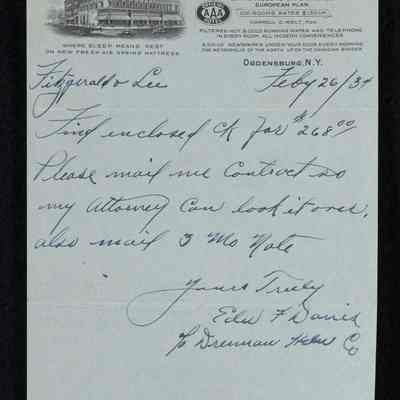 EUROPEAN PLAN
AAA
100 ROOMS RATES $1.50 UP
CARROLL C. BELT, PROP.
WHERE SLEEP MEANS REST
ON NEW FRESH AIR SPRING MATTRESS
FILTERED HOT & COLD RUNNING WATER AND TELEPHONE
IN EVERY ROOM, ALL MODERN CONVENIENCES
OGDENSBURG, N.Y.
Fitzgerald & Lee
Feby 26/34
Find enclosed ck for $268.00
Please mail me Contract so
my Attorney Can look it over,
also mail 3 Mo Note
Yours Truly
Edw F Davis
℅ Drennan Hdw Co